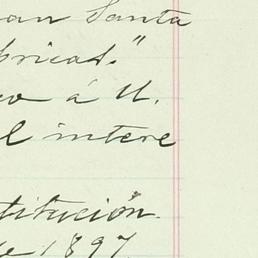 an Santa
bricas."
o á U.
l intere
titución.
e 1897